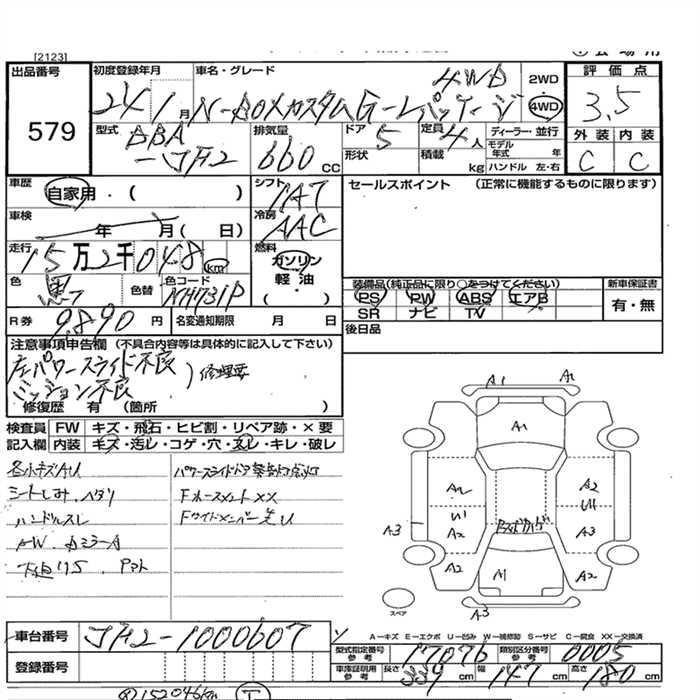 [2123]
出品番号
579
初度登録年月
24年1月
車名・グレード
N-BOXカスタムG-Lパッケージ
4WD
2WD
4WD
評価点
3.5
外装 内装
C C
型式
DBA
-JF2
排気量
660 CC
ドア
5
形状
定員
4人
積載 kg
ディーラー・並行
モデル年式 年
ハンドル 左・右
車歴
自家用・( )
シフト
IAT
車検
年 月( 日)
冷房
AAC
走行
15万2千048 km
燃料
ガソリン
軽油
・( )
色
黒
色替
色コード
NH731P
R券
9890円
名変通知期限 月 日
セールスポイント (正常に機能するものに限ります)
装備品(純正品に限り○をつけてください)
PS PW ABS エアB
SR ナビ TV
新車保証書
有・無
後日品
注意事項申告欄(不具合内容等は具体的に記入して下さい)
左パワースライド不良
ミッション不良
)修理要
修復歴 有 (箇所 )
検査員 FW キズ・飛石・ヒビ割・リペア跡・×要
記入欄 内装 キズ・汚レ・コゲ・穴・ヌレ・キレ・破レ
各小キズAU
シートしみ、ヘタリ
ハンドルスレ
AW、ミラーA
下廻りS、
パワースライドドア警告灯点灯
Fホースメントxx
Fサイドメンバー
A1
A1
A1
A2
U1
A2
A2
U1
A3
A3
A2
A1
A2
A3
スペア
A－キズ E－エクボ U－凹み W－補修跡 S－サビ C－腐食 XX－交換済
車台番号
JF2-1000607
登録番号
型式指定番号
参考
17076
類別区分番号
参考
0005
車庫証明用
参考
長さ 339 cm
幅 147 cm
高さ 180 cm
152046km